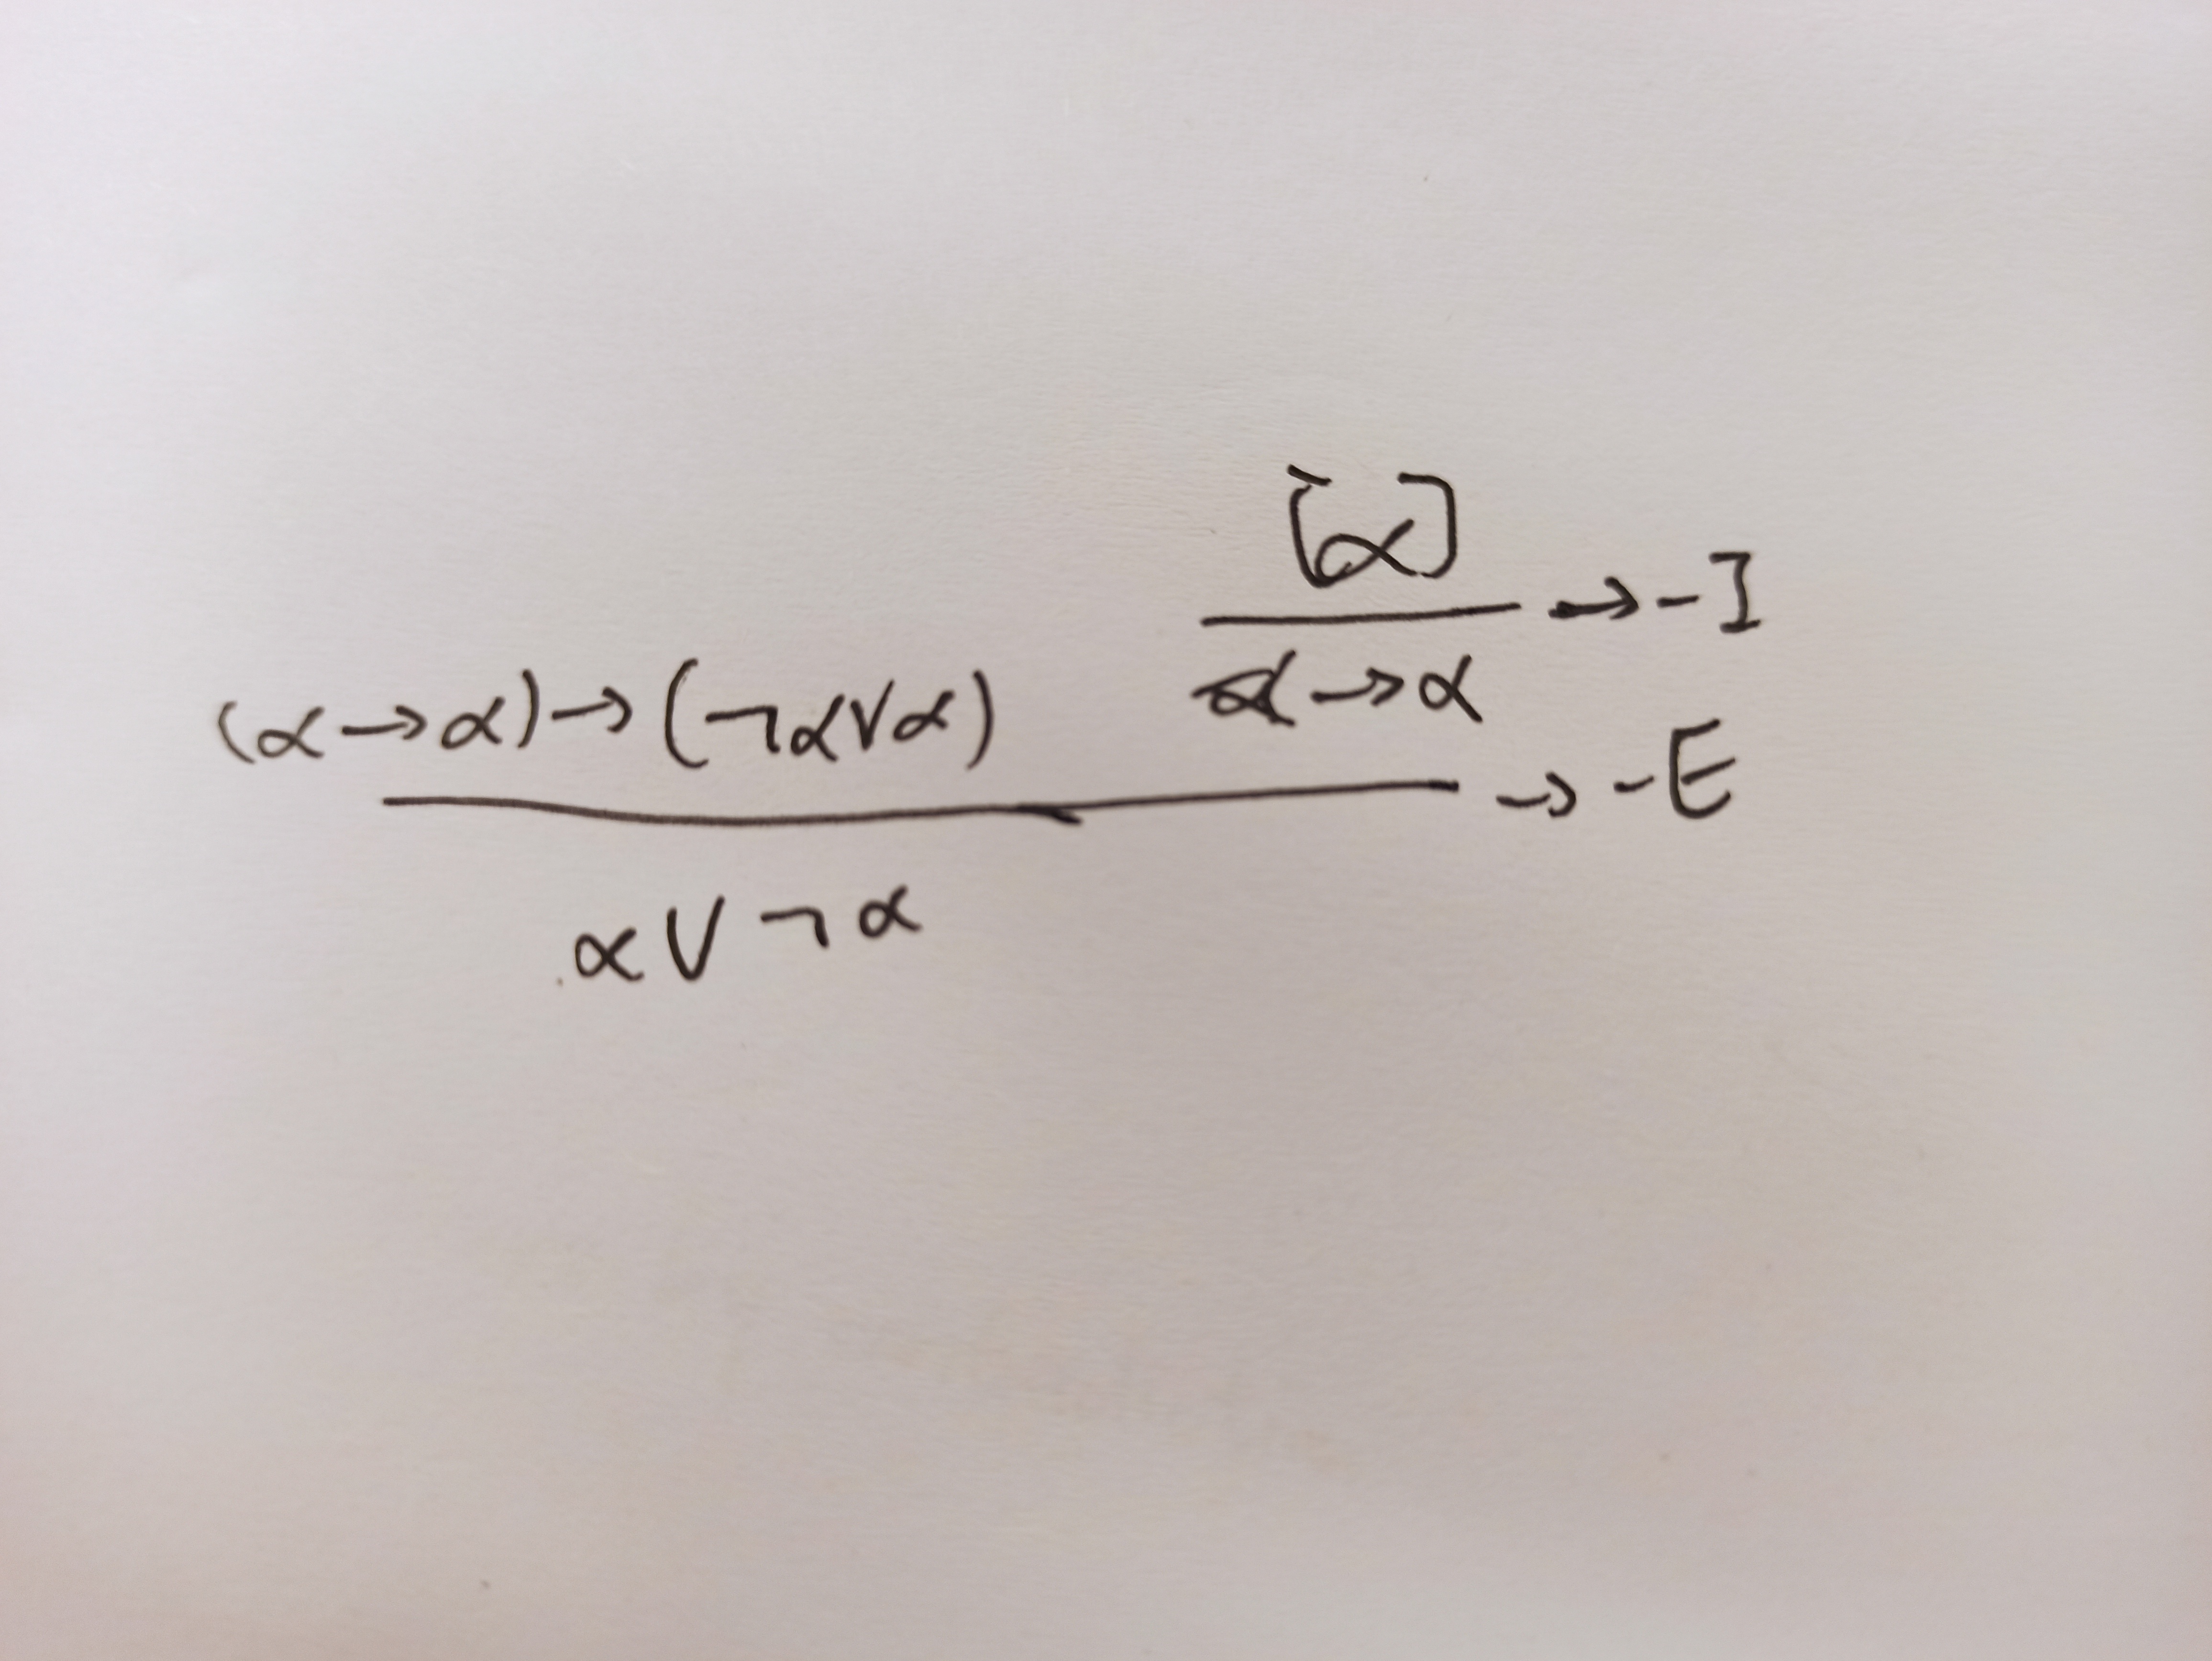 [α]
→-I
α→α
(α→α)→(¬α∨α)
→-E
α∨¬α